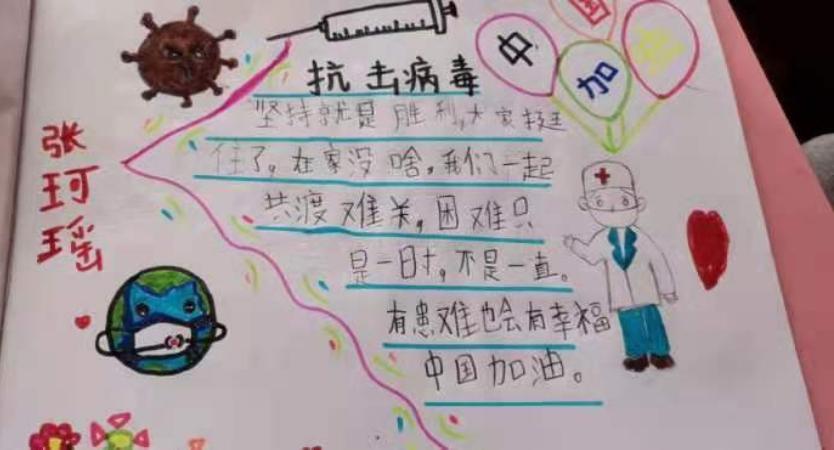 抗击病毒
坚持就是胜利,大家挺
住了。在家没啥,我们一起
共渡难关,困难只
是一时,不是一直。
有患难也会有幸福
中国加油。
张珂瑶
中国
加油